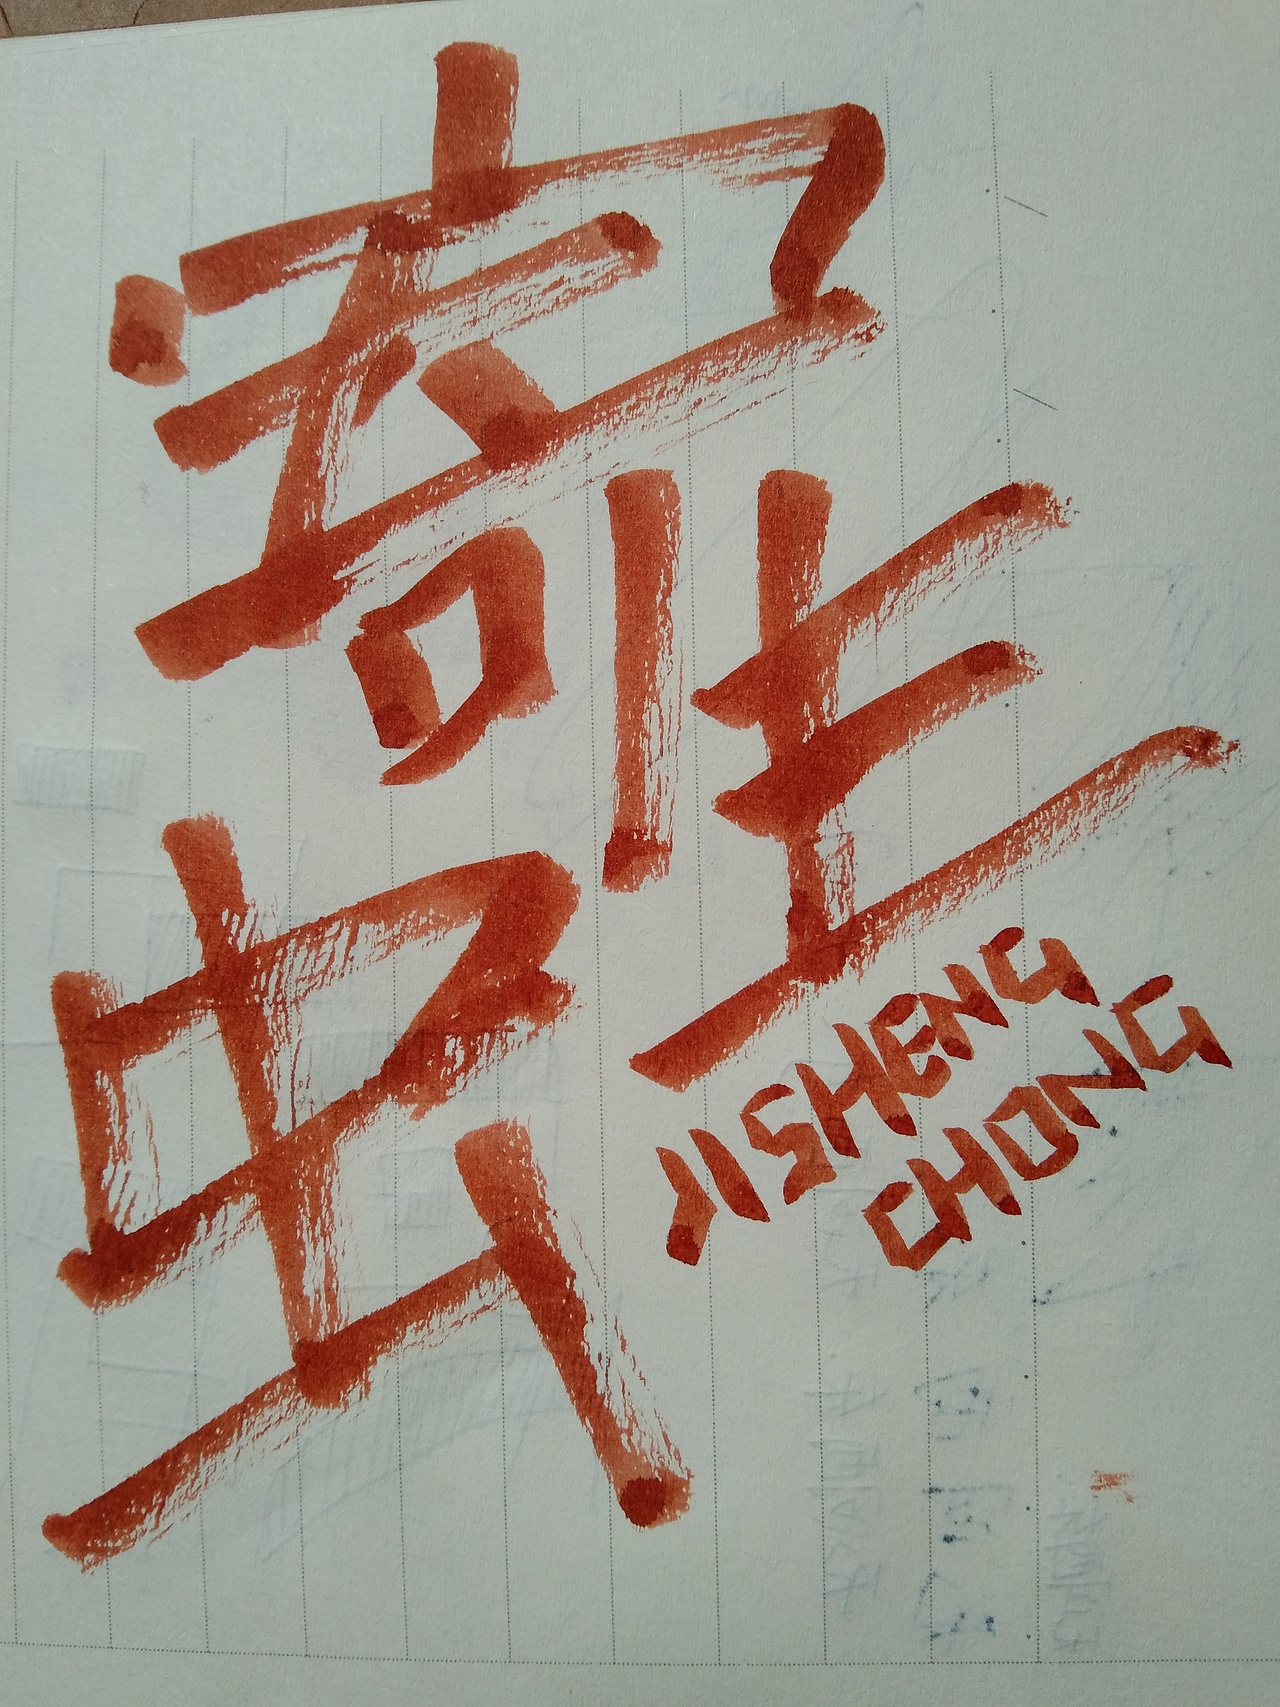 寄生
虫
JISHENG
CHONG